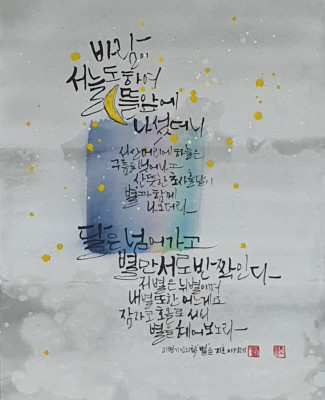 바람이
서늘도하여
뜰앞에
나섰더니
서산머리에 하늘은
구름을 벗어나고
산뜻한 초사흘달이
별과 함께
나오더라
달은 넘어가고
별만 서로 반짝인다
저별은 뉘별이며
내별 또한 어느게오
잠자코 호올로 서서
별을 헤어보노라
이병기님의 별을